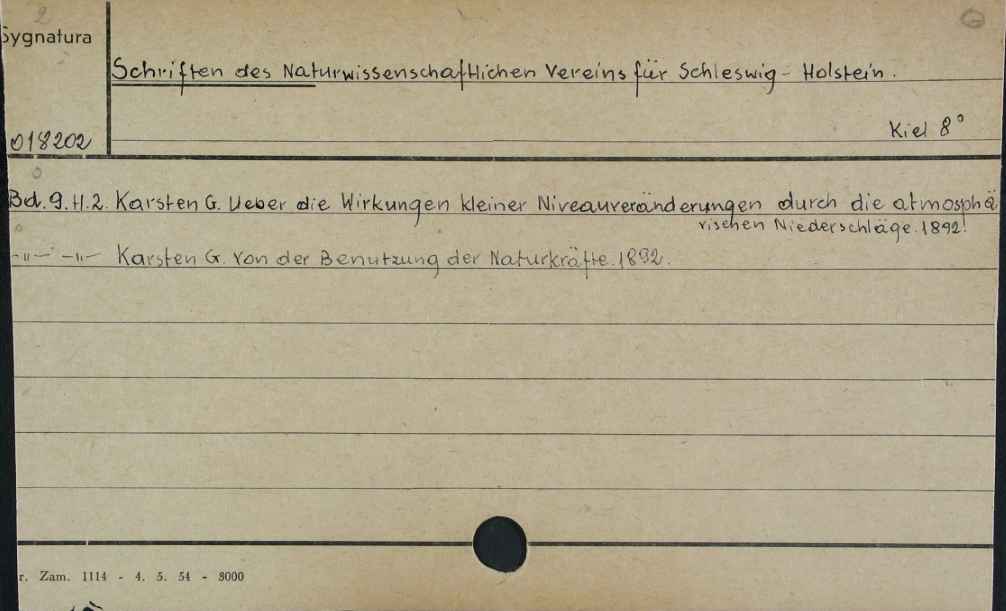 2
Sygnatura
Schriften des Naturwissenschaftlichen Vereins für Schleswig - Holstein.
018202
Kiel 8°
Bd. 9. H. 2. Karsten G. Ueber die Wirkungen kleiner Niveauveränderungen durch die atmosphä
rischen Niederschläge. 1892.
-"- -"- Karsten G. Von der Benutzung der Naturkräfte. 1892.
r. Zam. 1114 - 4. 5. 54 - 8000